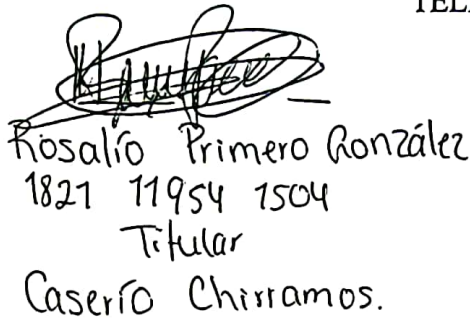 Rosalío Primero González
1821 11954 1504
Titular
Caserío Chirramos.